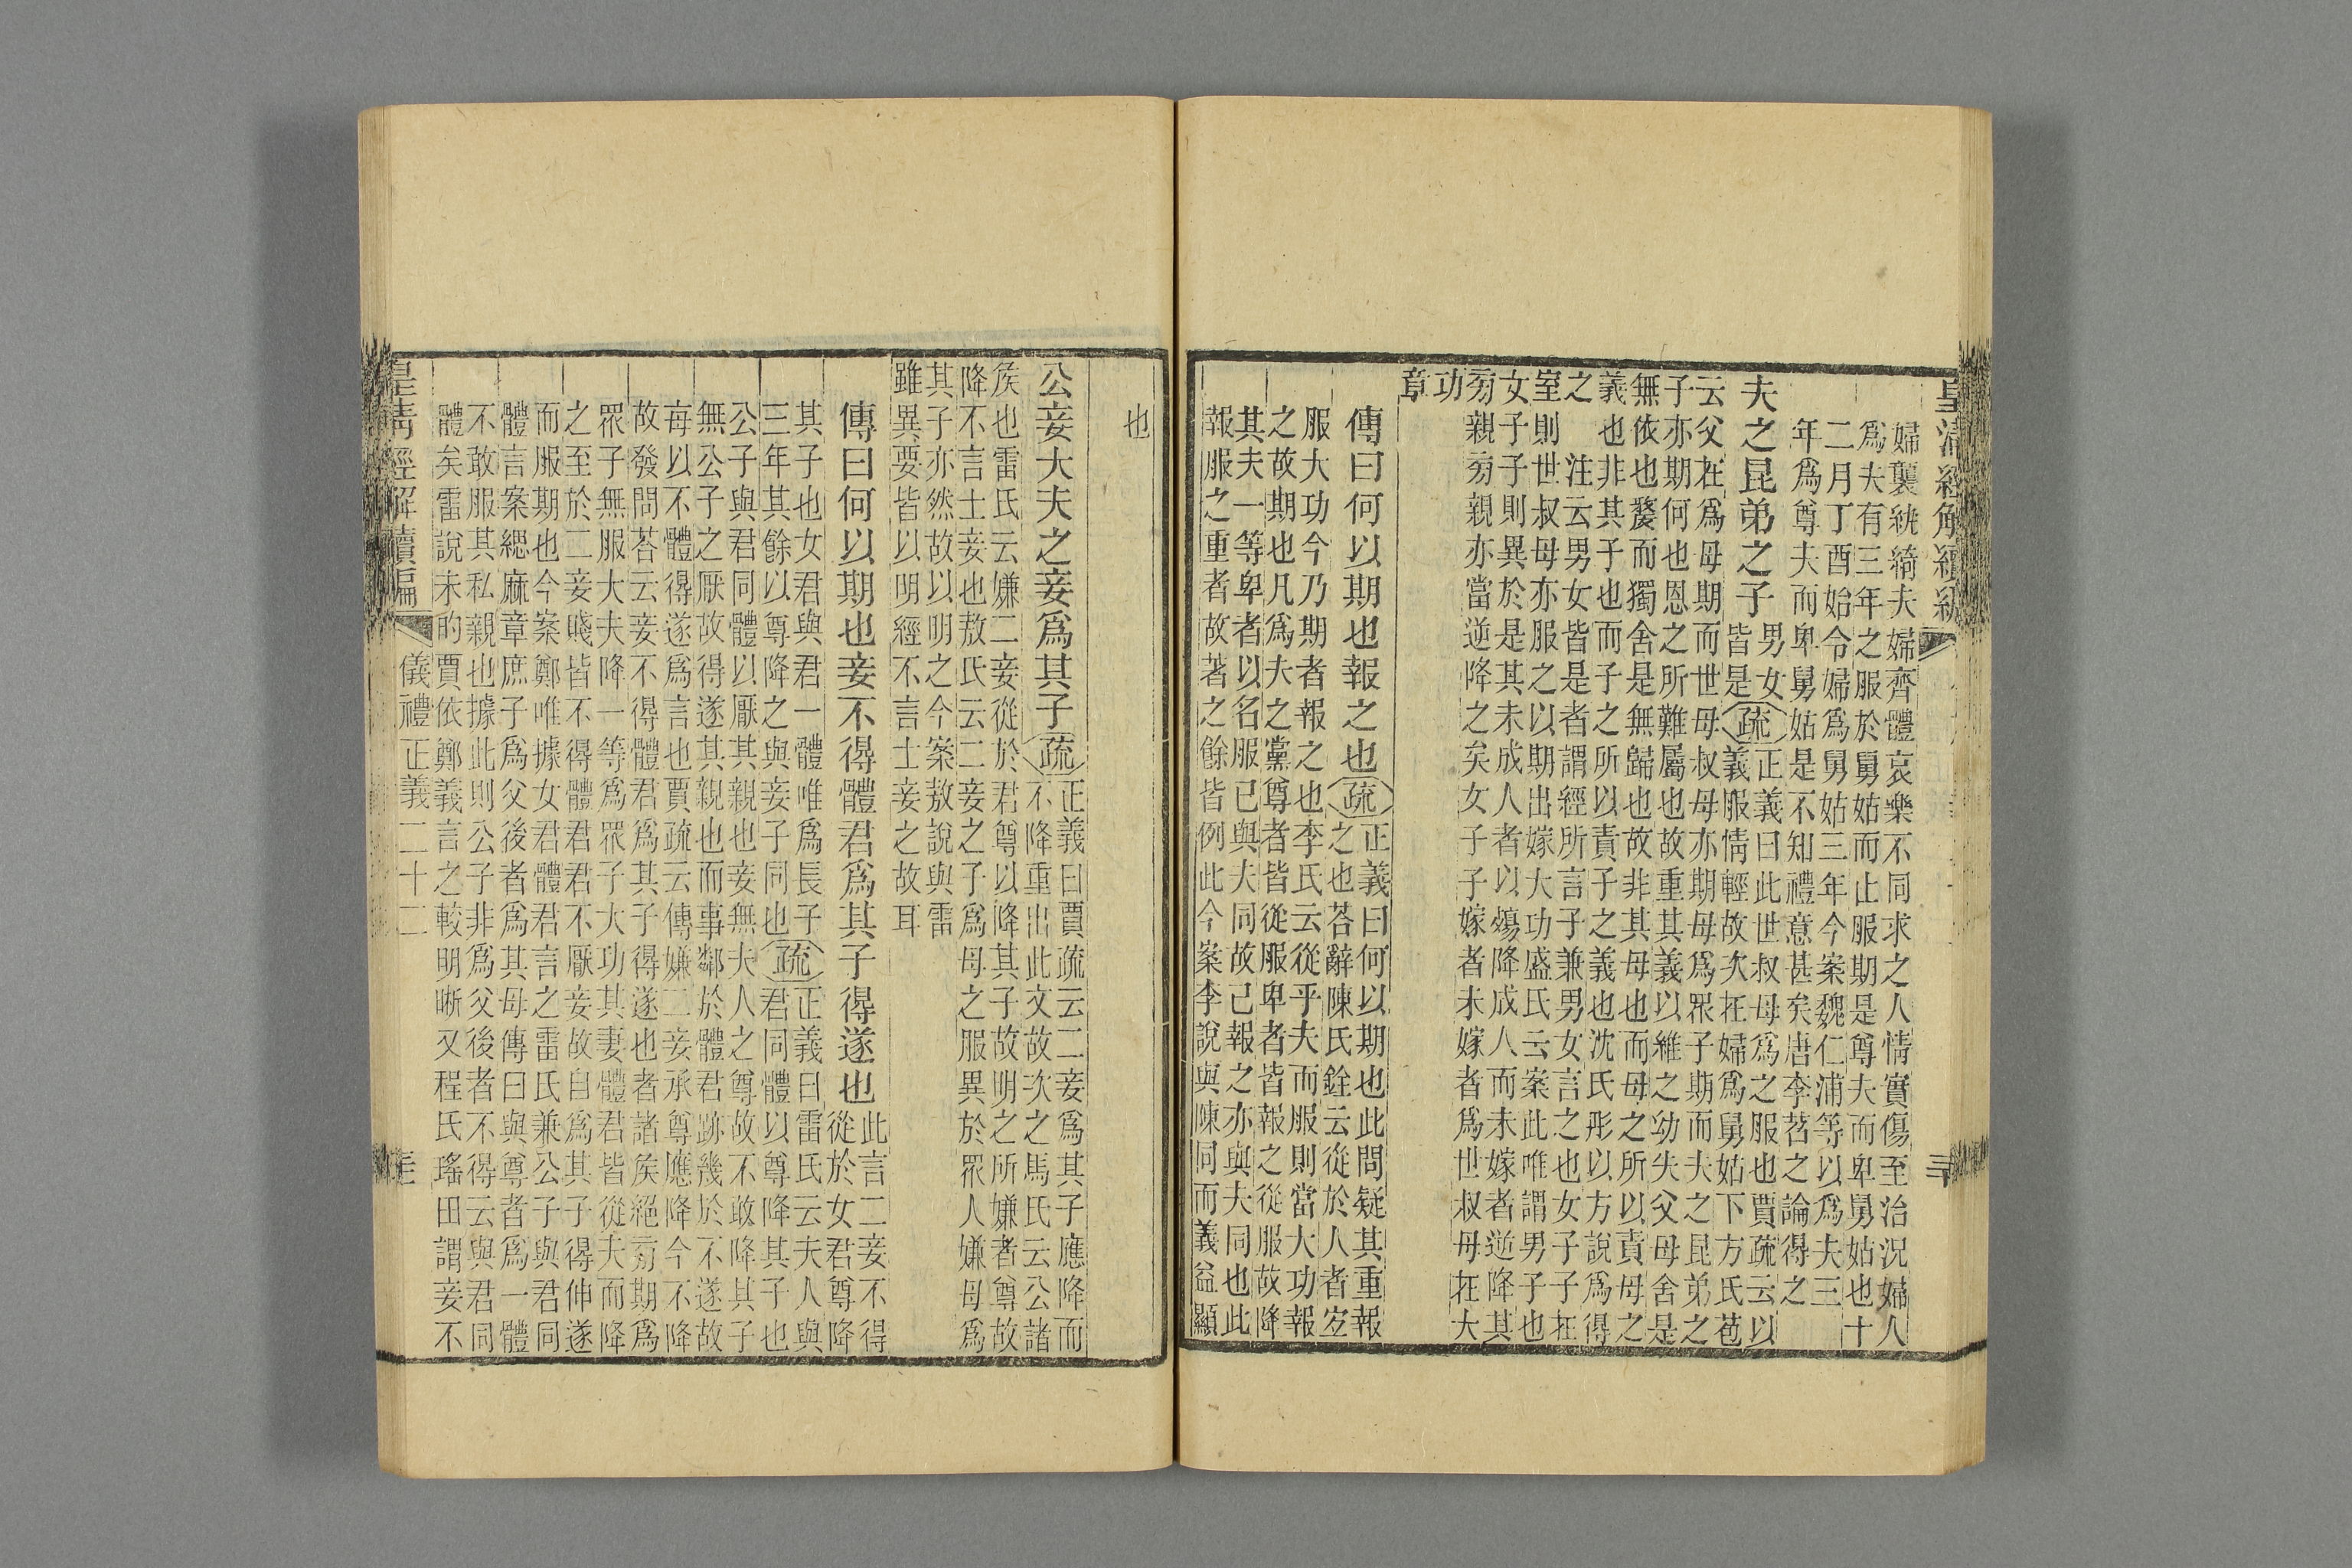 皇清經解續編
婦襲紈綺夫婦齊體哀樂不同求之人情實傷至治況婦人
爲夫有三年之服於舅姑而止服期是尊夫而卑舅姑也十
二月丁酉始令婦爲舅姑三年今案魏仁浦等以爲夫三
年爲尊夫而卑舅姑是不知禮意甚矣唐李苕之論得之
夫之昆弟之子
男女
皆是
疏
正義曰此世叔母爲之服也賈疏云以
義服情輕故次在婦爲舅姑下方氏苞
云父在爲母期而世母叔母亦期母爲眾子期而夫之昆弟之
子亦期何也恩之所難屬也故重其義以維之幼失父母舍是
無依也嫠而獨舍是無歸也故非其母也而母之所以責母之
義也非其子也而子之所以責子之義也沈氏彤以方說爲得
之 注云男女皆是者謂經所言子兼男女言之也女子子在
室則世叔母亦服之以期出嫁大功盛氏云案此唯謂男子也
女子子則異於是其未成人者以殤降成人而未嫁者逆降其
旁親旁親亦當逆降之矣女子子嫁者未嫁者爲世叔母在大
功
章
傳曰何以期也報之也
疏
正義曰何以期也此問疑其重報
之也荅辭陳氏銓云從於人者宜
服大功今乃期者報之也李氏云從乎夫而服則當大功報
之故期也凡爲夫之黨尊者皆從服卑者皆報之從服故降
其夫一等卑者以名服已與夫同故己報之亦與夫同也此
報服之重者故著之餘皆例此今案李說與陳同而義益顯
也
公妾大夫之妾爲其子
疏
正義曰賈疏云二妾爲其子應降而
不降重出此文故次之馬氏云公諸
矦也雷氏云嫌二妾從於君尊以降其子故明之所嫌者尊故
降不言士妾也敖氏云二妾之子爲母之服異於眾人嫌母爲
其子亦然故以明之今案敖說與雷
雖異要皆以明經不言士妾之故耳
傳曰何以期也妾不得體君爲其子得遂也
此言二妾不得
從於女君尊降
其子也女君與君一體唯爲長子
三年其餘以尊降之與妾子同也
疏
正義曰雷氏云夫人與
君同體以尊降其子也
公子與君同體以厭其親也妾無夫人之尊故不敢降其子
無公子之厭故得遂其親也而事鄰於體君跡幾於不遂故
每以不體得遂爲言也賈疏云傳嫌二妾承尊應降今不降
故發問荅云妾不得體君爲其子得遂也者諸矦絕旁期爲
眾子無服大夫降一等爲眾子大功其妻體君皆從夫而降
之至於二妾賤皆不得體君君不厭妾故自爲其子得伸遂
而服期也今案鄭唯據女君體君言之雷氏兼公子與君同
體言案緦麻章庶子爲父後者爲其母傳曰與尊者爲一體
不敢服其私親也據此則公子非爲父後者不得云與君同
體矣雷說未的賈依鄭義言之較明晰又程氏瑤田謂妾不
皇清經解續編
儀禮正義二十二